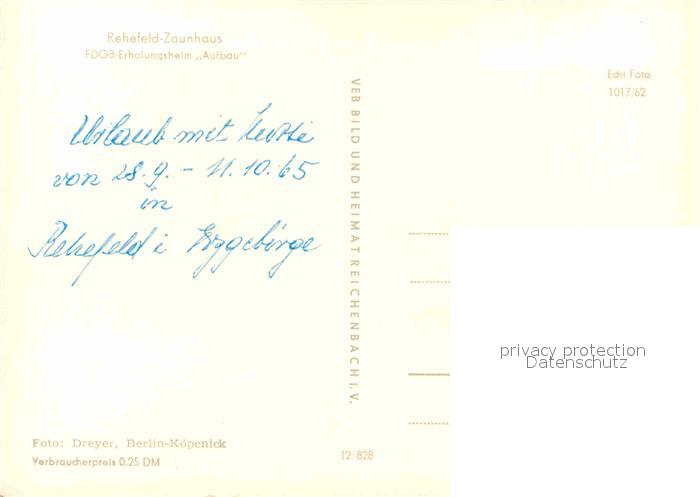 Rehefeld-Zaunhaus
FDGB-Erholungsheim „Aufbau"
Echt Foto
1017/62
Urlaub mit
von 28.9. - 11.10.65
in
Rehefeld i Erzgebirge
VEB BILD UND HEIMAT REICHENBACH I. V.
privacy protection
Datenschutz
Foto: Dreyer, Berlin-Köpenick
Verbraucherpreis 0.25 DM
12 828